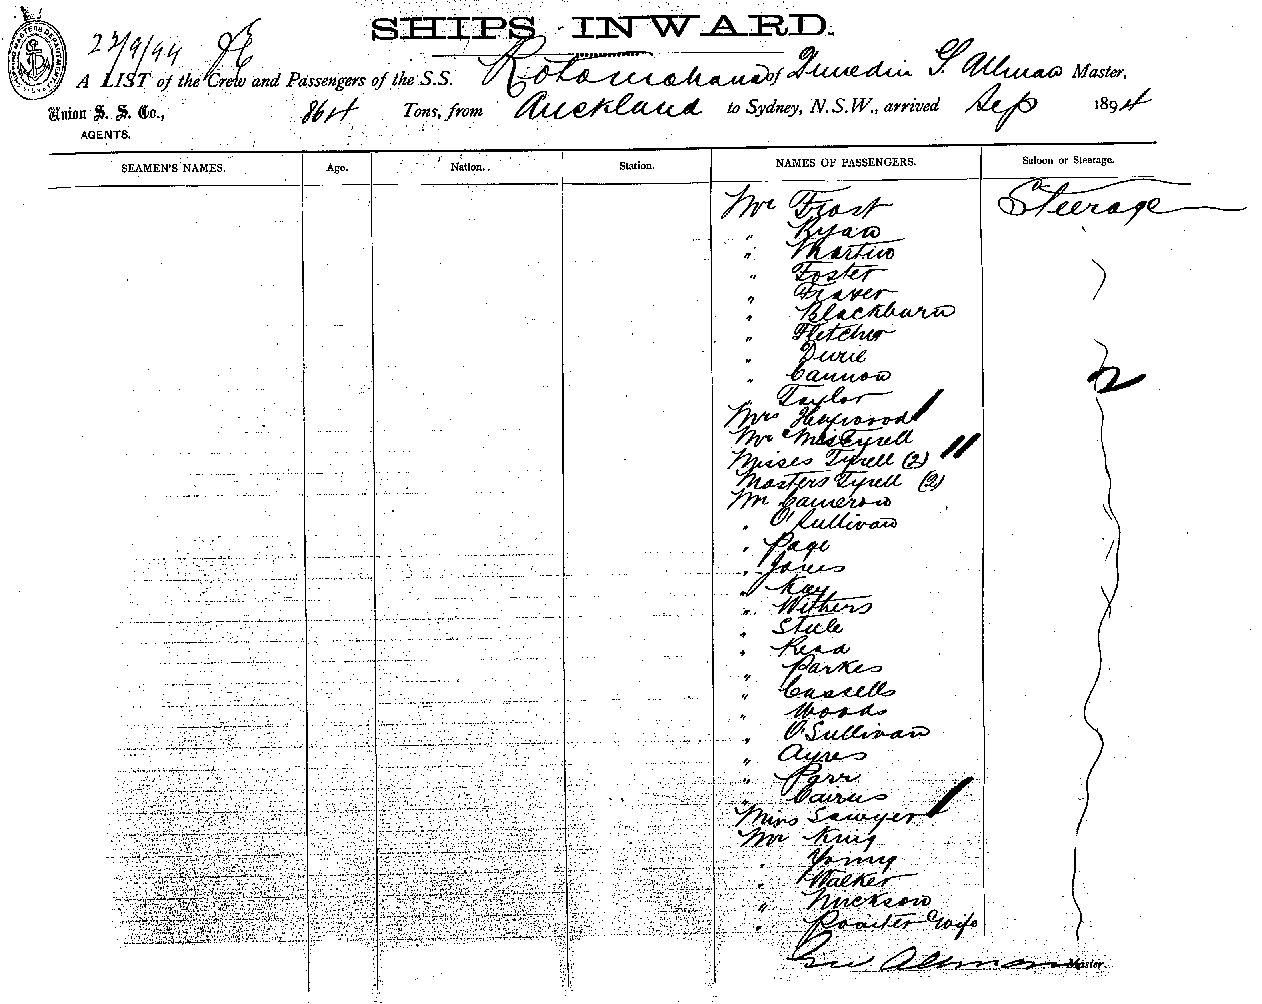 SHIPS INWARD.
22/9/94
A LIST of the Crew and Passengers of the S.S. Rotomahana of Dunedin G. Allman Master,
Union S. S. Co., 864 Tons, from Auckland to Sydney, N.S.W., arrived Sep 1894
AGENTS.
SEAMEN'S NAMES. Age. Nation. Station. NAMES OF PASSENGERS. Saloon or Steerage.
Mr Frost Steerage
" Ryan
" Martin
" Foster
" Fraser
" Blackburn
" Fletcher
" Durie
" Cannon
" Taylor
Mrs Heywood
Mr & Mrs Tyrell
Misses Tyrell (2)
Masters Tyrell (2)
Mr Cameron
" O'Sullivan
" Page
" Jones
" Kay
" Withers
" Steele
" Read
" Parkes
" Cassells
" Woods
" O'Sullivan
" Ayres
" Parr
" Cairns
Miss Sawyer
Mr King
" Young
" Walker
" Nickson
" & Wife
Geo Allman Master